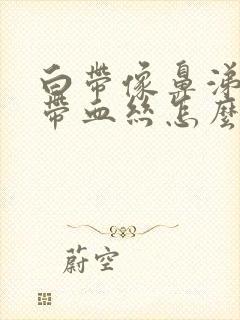 白帶像鼻涕
帶血絲怎麼
蔚空